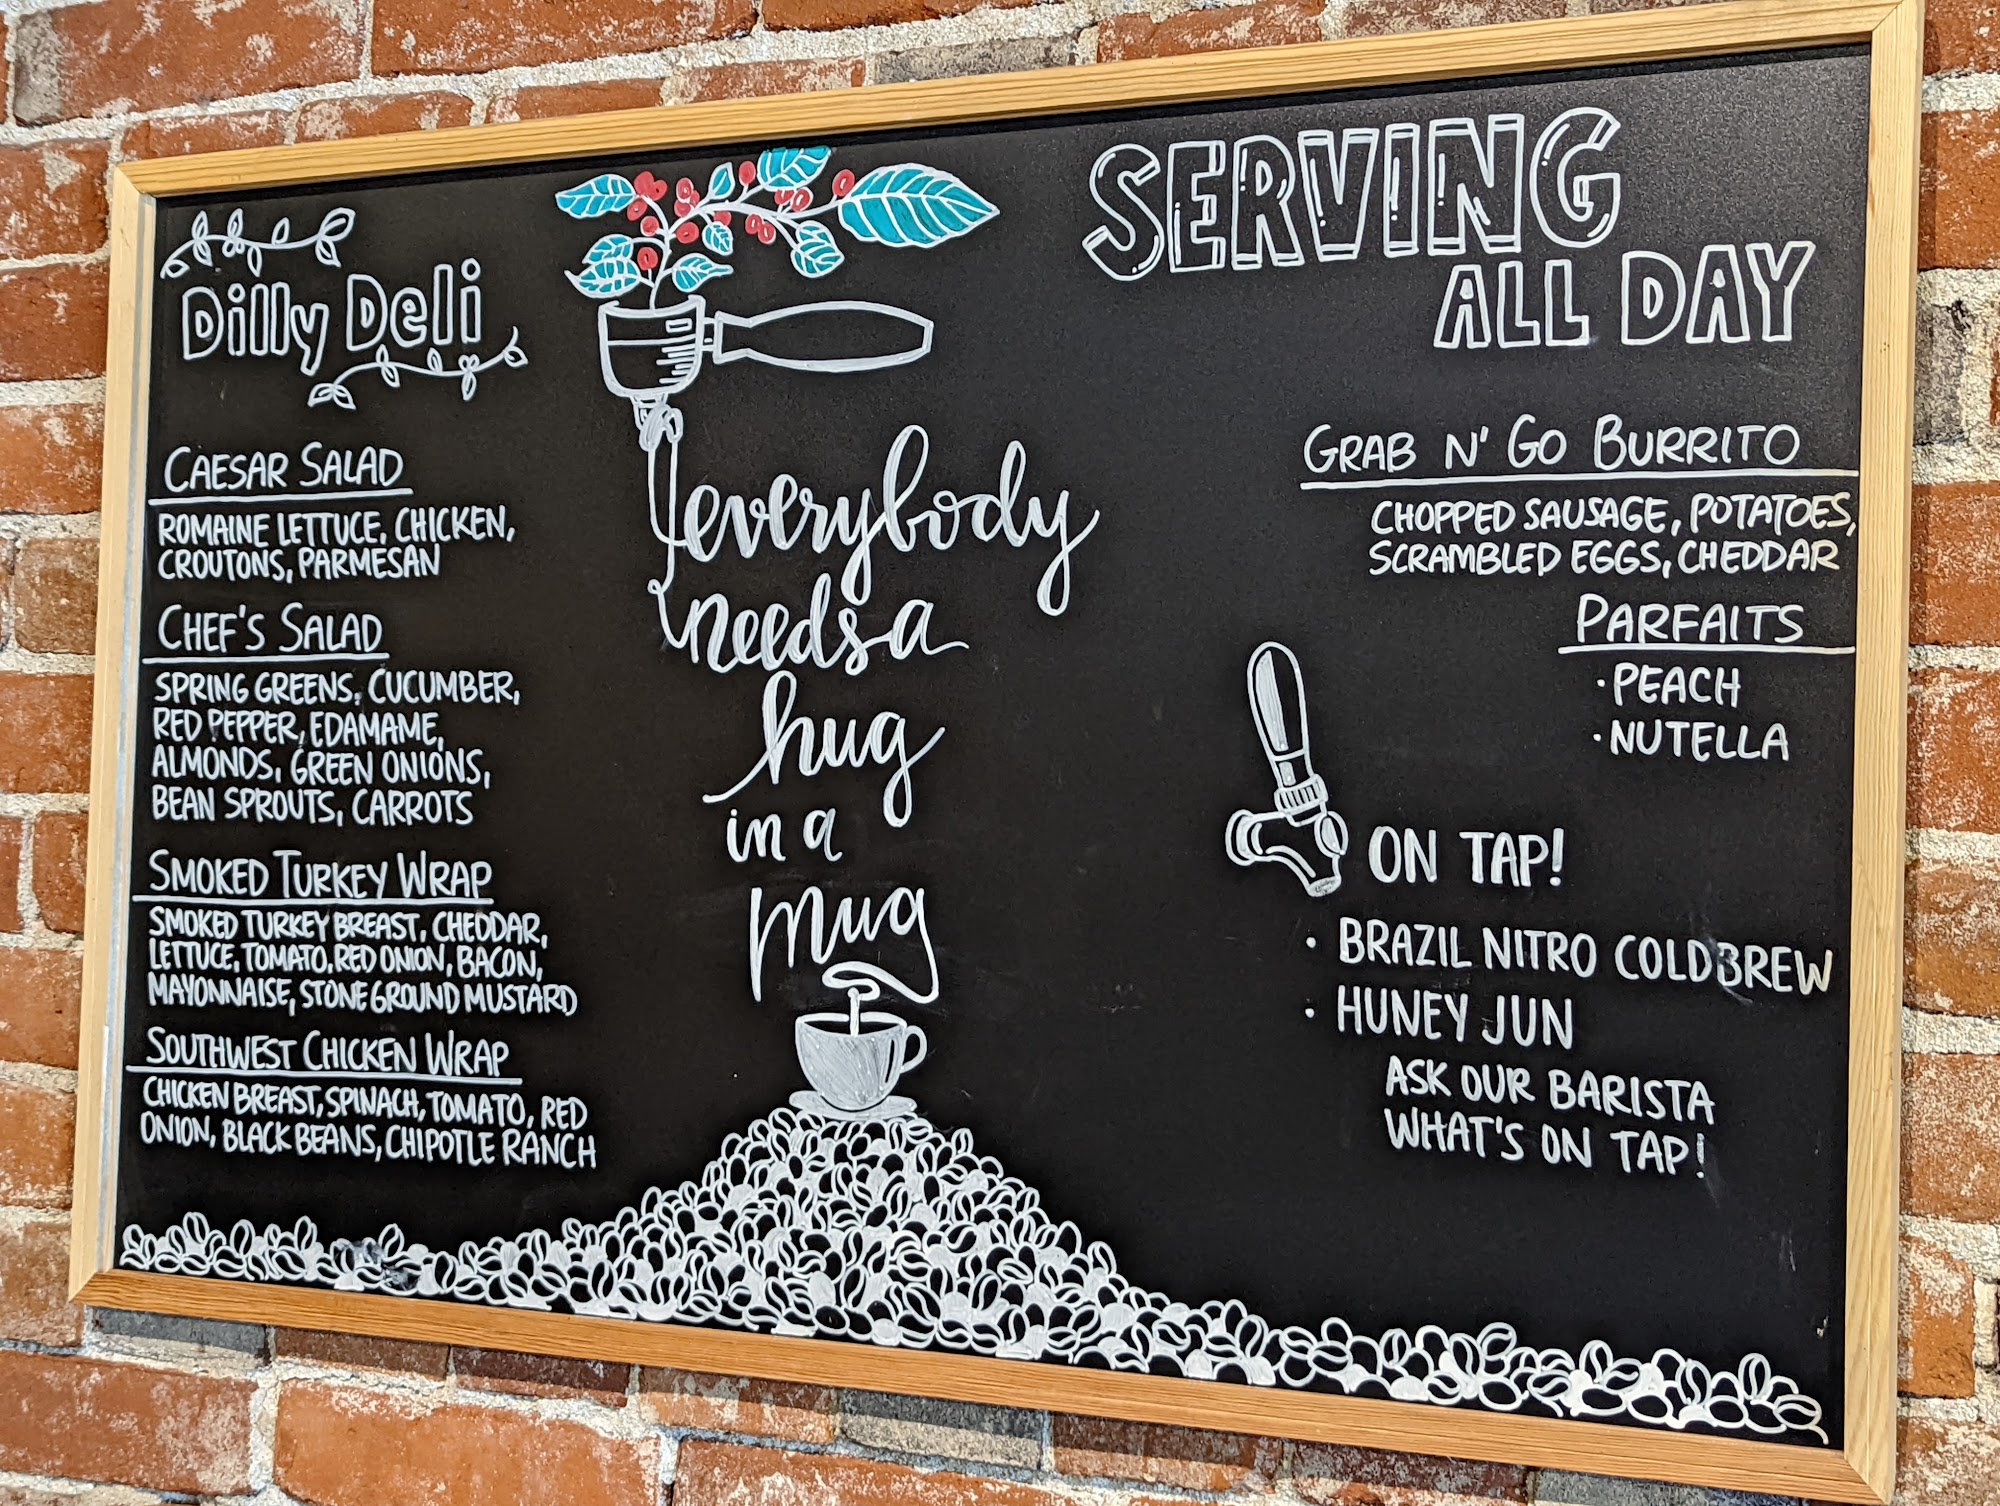 Dilly Deli
CAESAR SALAD
ROMAINE LETTUCE, CHICKEN,
CROUTONS, PARMESAN
CHEF'S SALAD
SPRING GREENS, CUCUMBER,
RED PEPPER, EDAMAME,
ALMONDS, GREEN ONIONS,
BEAN SPROUTS, CARROTS
SMOKED TURKEY WRAP
SMOKED TURKEY BREAST, CHEDDAR,
LETTUCE, TOMATO, RED ONION, BACON,
MAYONNAISE, STONE GROUND MUSTARD
SOUTHWEST CHICKEN WRAP
CHICKEN BREAST, SPINACH, TOMATO, RED
ONION, BLACK BEANS, CHIPOTLE RANCH
everybody
needs a
hug
in a
mug
SERVING
ALL DAY
GRAB N' GO BURRITO
CHOPPED SAUSAGE, POTATOES,
SCRAMBLED EGGS, CHEDDAR
PARFAITS
· PEACH
· NUTELLA
ON TAP!
· BRAZIL NITRO COLD BREW
· HUNEY JUN
ASK OUR BARISTA
WHAT'S ON TAP!